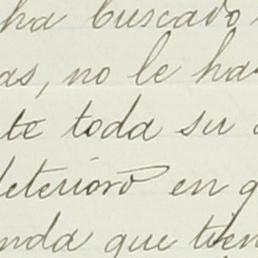 ha buscado
as, no le ha
te toda su
deterioro en
nda que tien